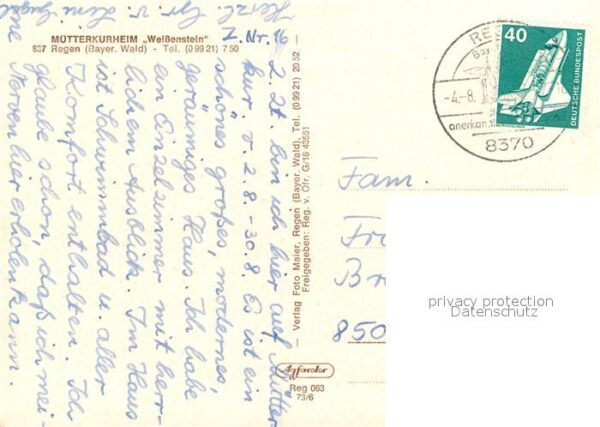 MÜTTERKURHEIM „Weißenstein"
837 Regen (Bayer. Wald) - Tel. (0 99 21) 7 50
Z. Nr. 16
Z. Zt. bin ich hier auf Mütter
kur v. 2.8. - 30.8. Es ist ein
schönes großes, modernes,
geräumiges Haus. Ich habe
ein Einzelzimmer mit herr-
lichem Ausblick. Im Haus
ist Schwimmbad u. aller
Konfort enthalten. Ich
hoffe schon, daß ich mei-
ne Nerven hier erholen kann.
Herzl. Gr. v.
Verlag Foto Maier, Regen (Bayer. Wald), Tel. (0 99 21) 20 52
Freigegeben: Reg. v. Ofr. G/16 43551
Agfacolor
Reg 063
73/6
40
DEUTSCHE BUNDESPOST
-4.-8.
8370
Fam.
Fr
Br
850
privacy protection
Datenschutz